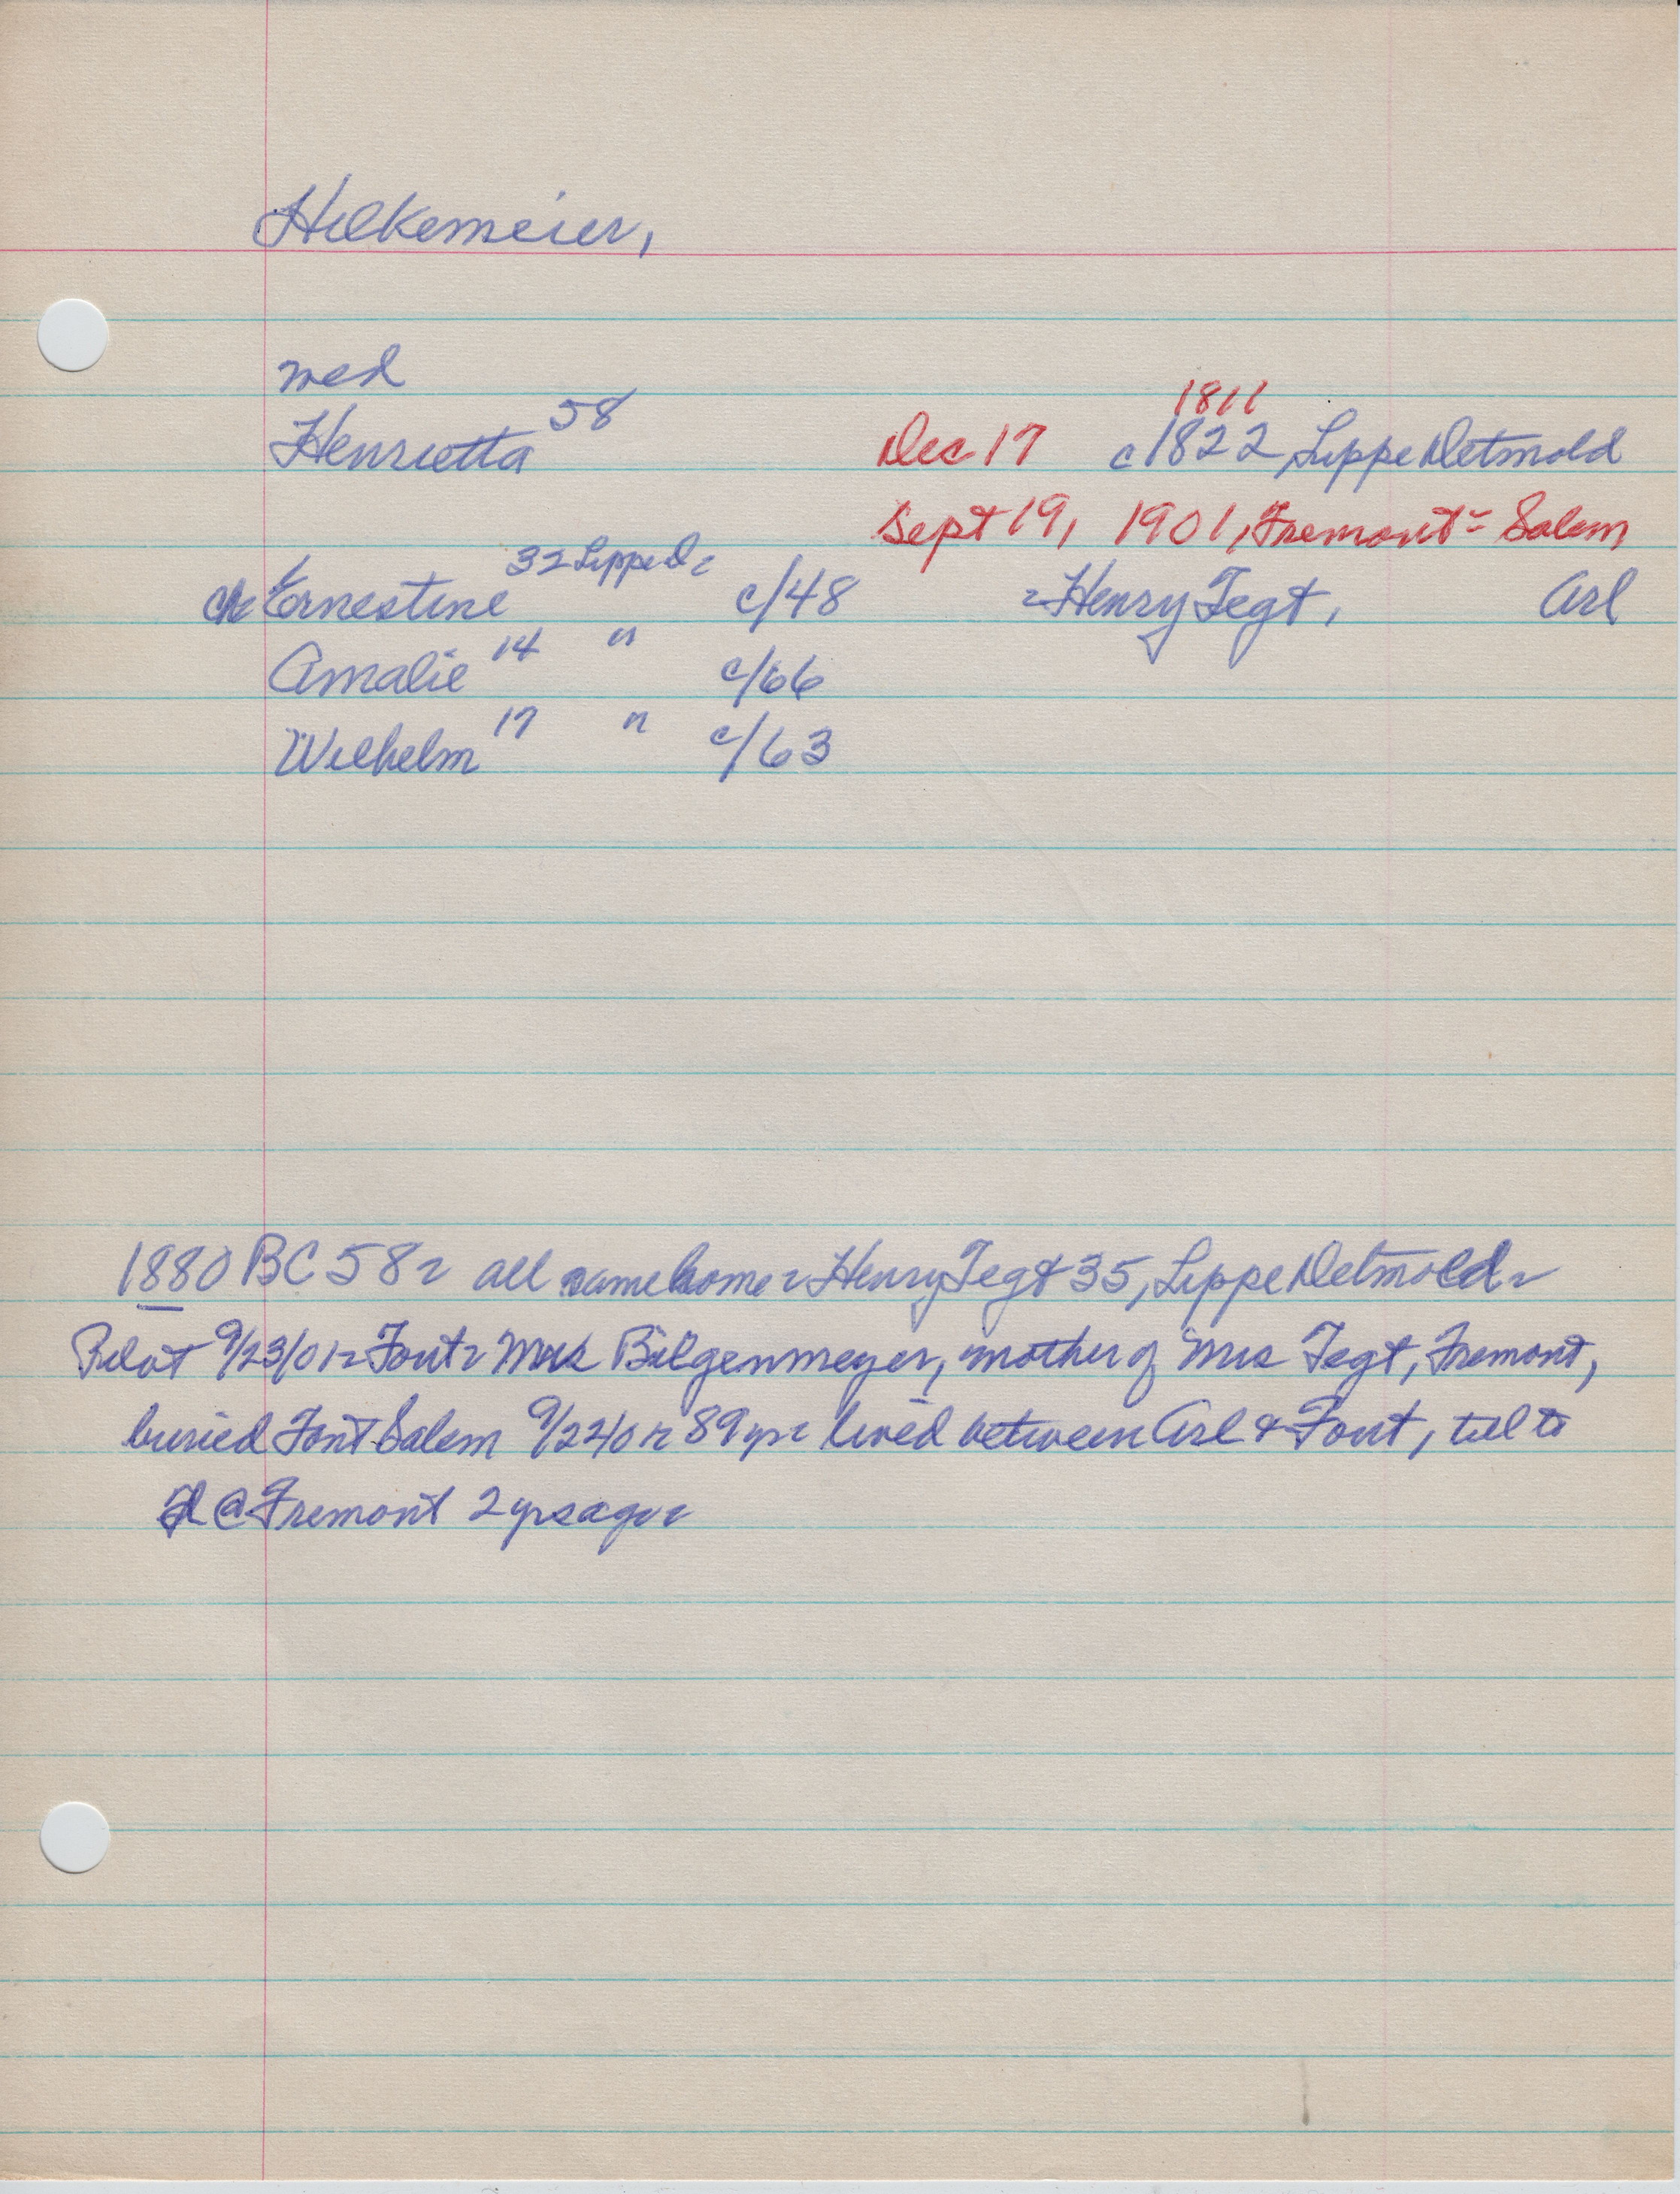 Hilkemeier,
med
Henrietta 58 Dec 17 c 1822, Lippe Detmold
1811
Sept 19, 1901, Fremont - Salem
ch Ernestine 32 Lippe D - c/48 - Henry Tegt, Arl
Amalie 14 " c/66
Wilhelm 17 " c/63
1880 BC 58 - all same home - Henry Tegt 35, Lippe Detmold -
Pilot 9/23/01 - Font - Mrs Bilgenmeyer, mother of Mrs Tegt, Fremont,
buried Font Salem 9/22/01 - 89 yr - lived between Arl & Font, till to
@ Fremont 2 yrs ago -